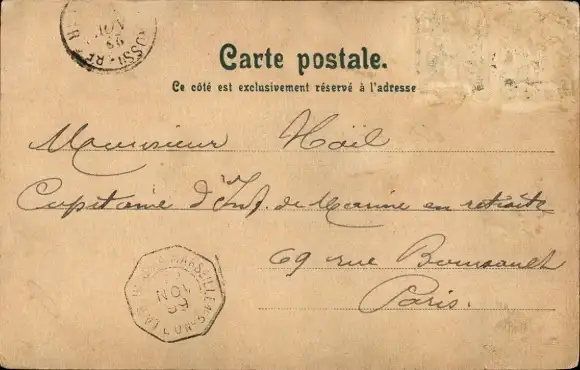 Carte postale.
Ce côté est exclusivement réservé à l'adresse
Monsieur Hoël
Capitaine d'Inf. de Marine en retraite
69 rue Boursault
Paris.
NOV
99